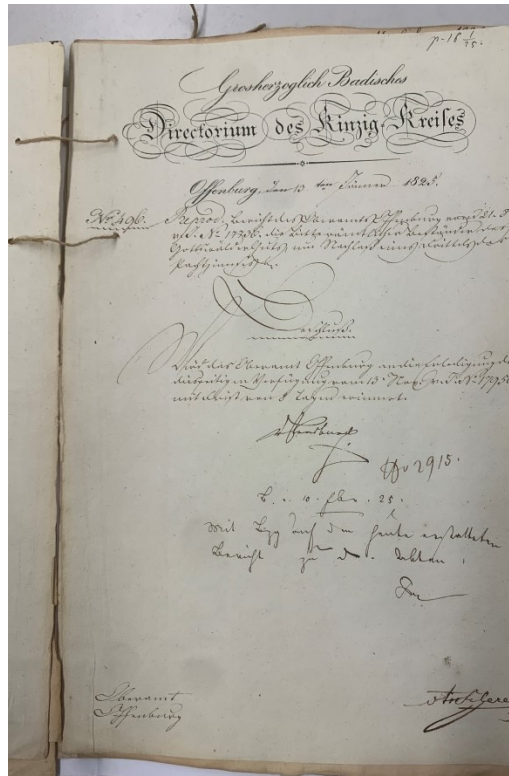 p. 16 1/25.
Grosherzoglich Badisches
Directorium des Kinzig-Kreises
Offenburg, den 13ten Jänner 1825.
No. 496. Reprod. Bericht des Oberamts Offenburg vom 21. D
v. J. No. 17336. die Bitte
um Nachlass eines Drittels des
Pachtzinses
Beschluß.
Wird das Oberamt Offenburg an die Erledigung der
diesseitigen Verfügung vom 13. Nov. v. J. No.
mit Frist von 8 Tagen erinnert.
No 2915.
B. . 10. Fbr. 25.
Mit Bzg auf den heute erstatteten
Bericht zu d. Akten.
Oberamt
Offenburg